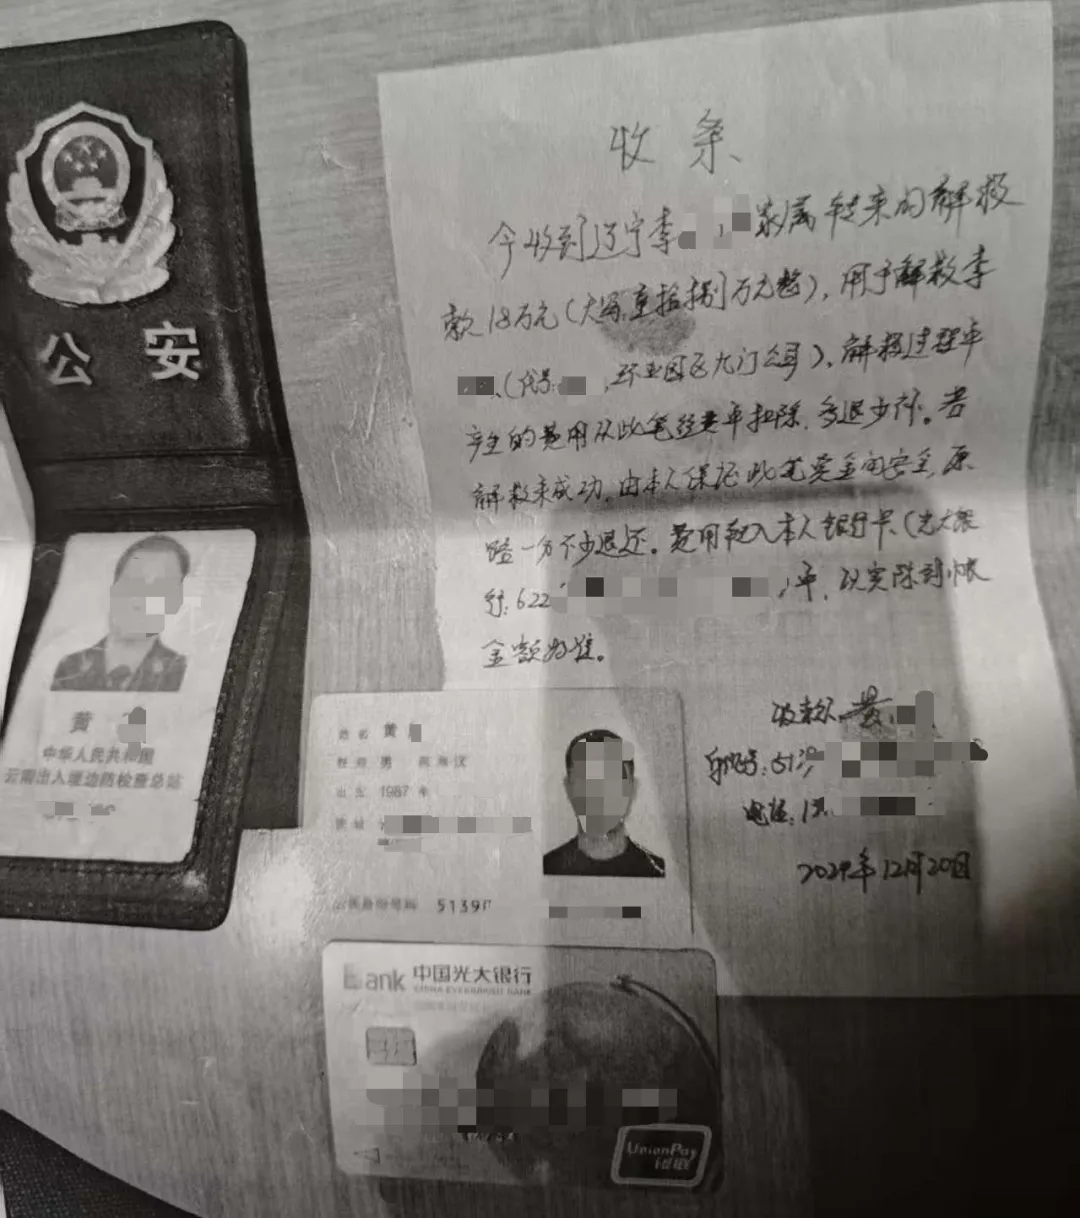 公安
黄
中华人民共和国
云南出入境边防检查总站
收条
今收到辽宁李 家属转来的解救
款18万元(大写:壹拾捌万元整),用于解救李
(代号: 园区九门公司),解救过程中
产生的费用从此笔经费中扣除,多退少补。若
解救未成功,由本人保证此笔资金的安全,原
路一分不少退还。费用转入本人银行卡(光大银
行:622 )中,以实际到帐
金额为准。
收款人:黄
身份证号:513
电话:1
2024年12月20日
姓名 黄
性别 男 民族 汉
出生 1987 年
住址
公民身份号码 5139
Bank 中国光大银行
CHINA EVERBRIGHT BANK
UnionPay
银联